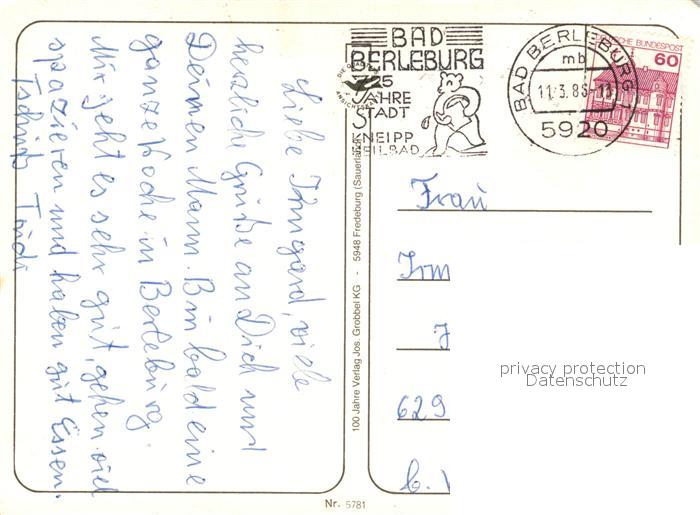 Liebe Irmgard, viele
herzliche Grüße an Dich und
Deinen Mann. Bin bald eine
ganze Woche in Berleburg
Mir geht es sehr gut, gehen viel
spazieren und haben gut Essen.
Tschüß Trudi
BAD
BERLEBURG
725
JAHRE
STADT
KNEIPP
HEILBAD
BAD BERLEBURG 1
mb
11.3.86-18
5920
DEUTSCHE BUNDESPOST
60
100 Jahre Verlag Jos. Grobbel KG - 5948 Fredeburg (Sauerland)
Frau
Irm
629
privacy protection
Datenschutz
Nr. 5781